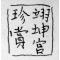 翊坤宮
珍賞